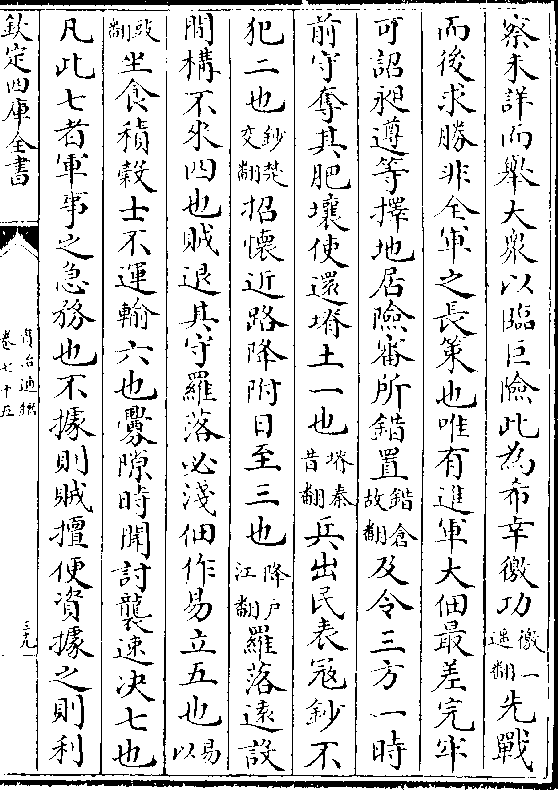 察未詳而舉大衆以臨巨險此為希幸徼功徼一遥翻先戰
而後求勝非全軍之長策也唯有進軍大佃最差完牢
可詔昶遵等擇地居險審所錯置錯倉故翻及令三方一時
前守奪其肥壤使還塉土一也塉秦昔翻兵出民表宼鈔不
犯二也鈔楚交翻招懷近路降附日至三也降户江翻羅落逺設
間構不來四也賊退其守羅落必淺佃作易立五也易以
豉翻坐食積穀士不運輸六也釁隙時聞討襲速决七也
凡此七者軍事之急務也不據則賊擅便資據之則利
欽定四庫全書
資治通鑑
卷七十五
三九